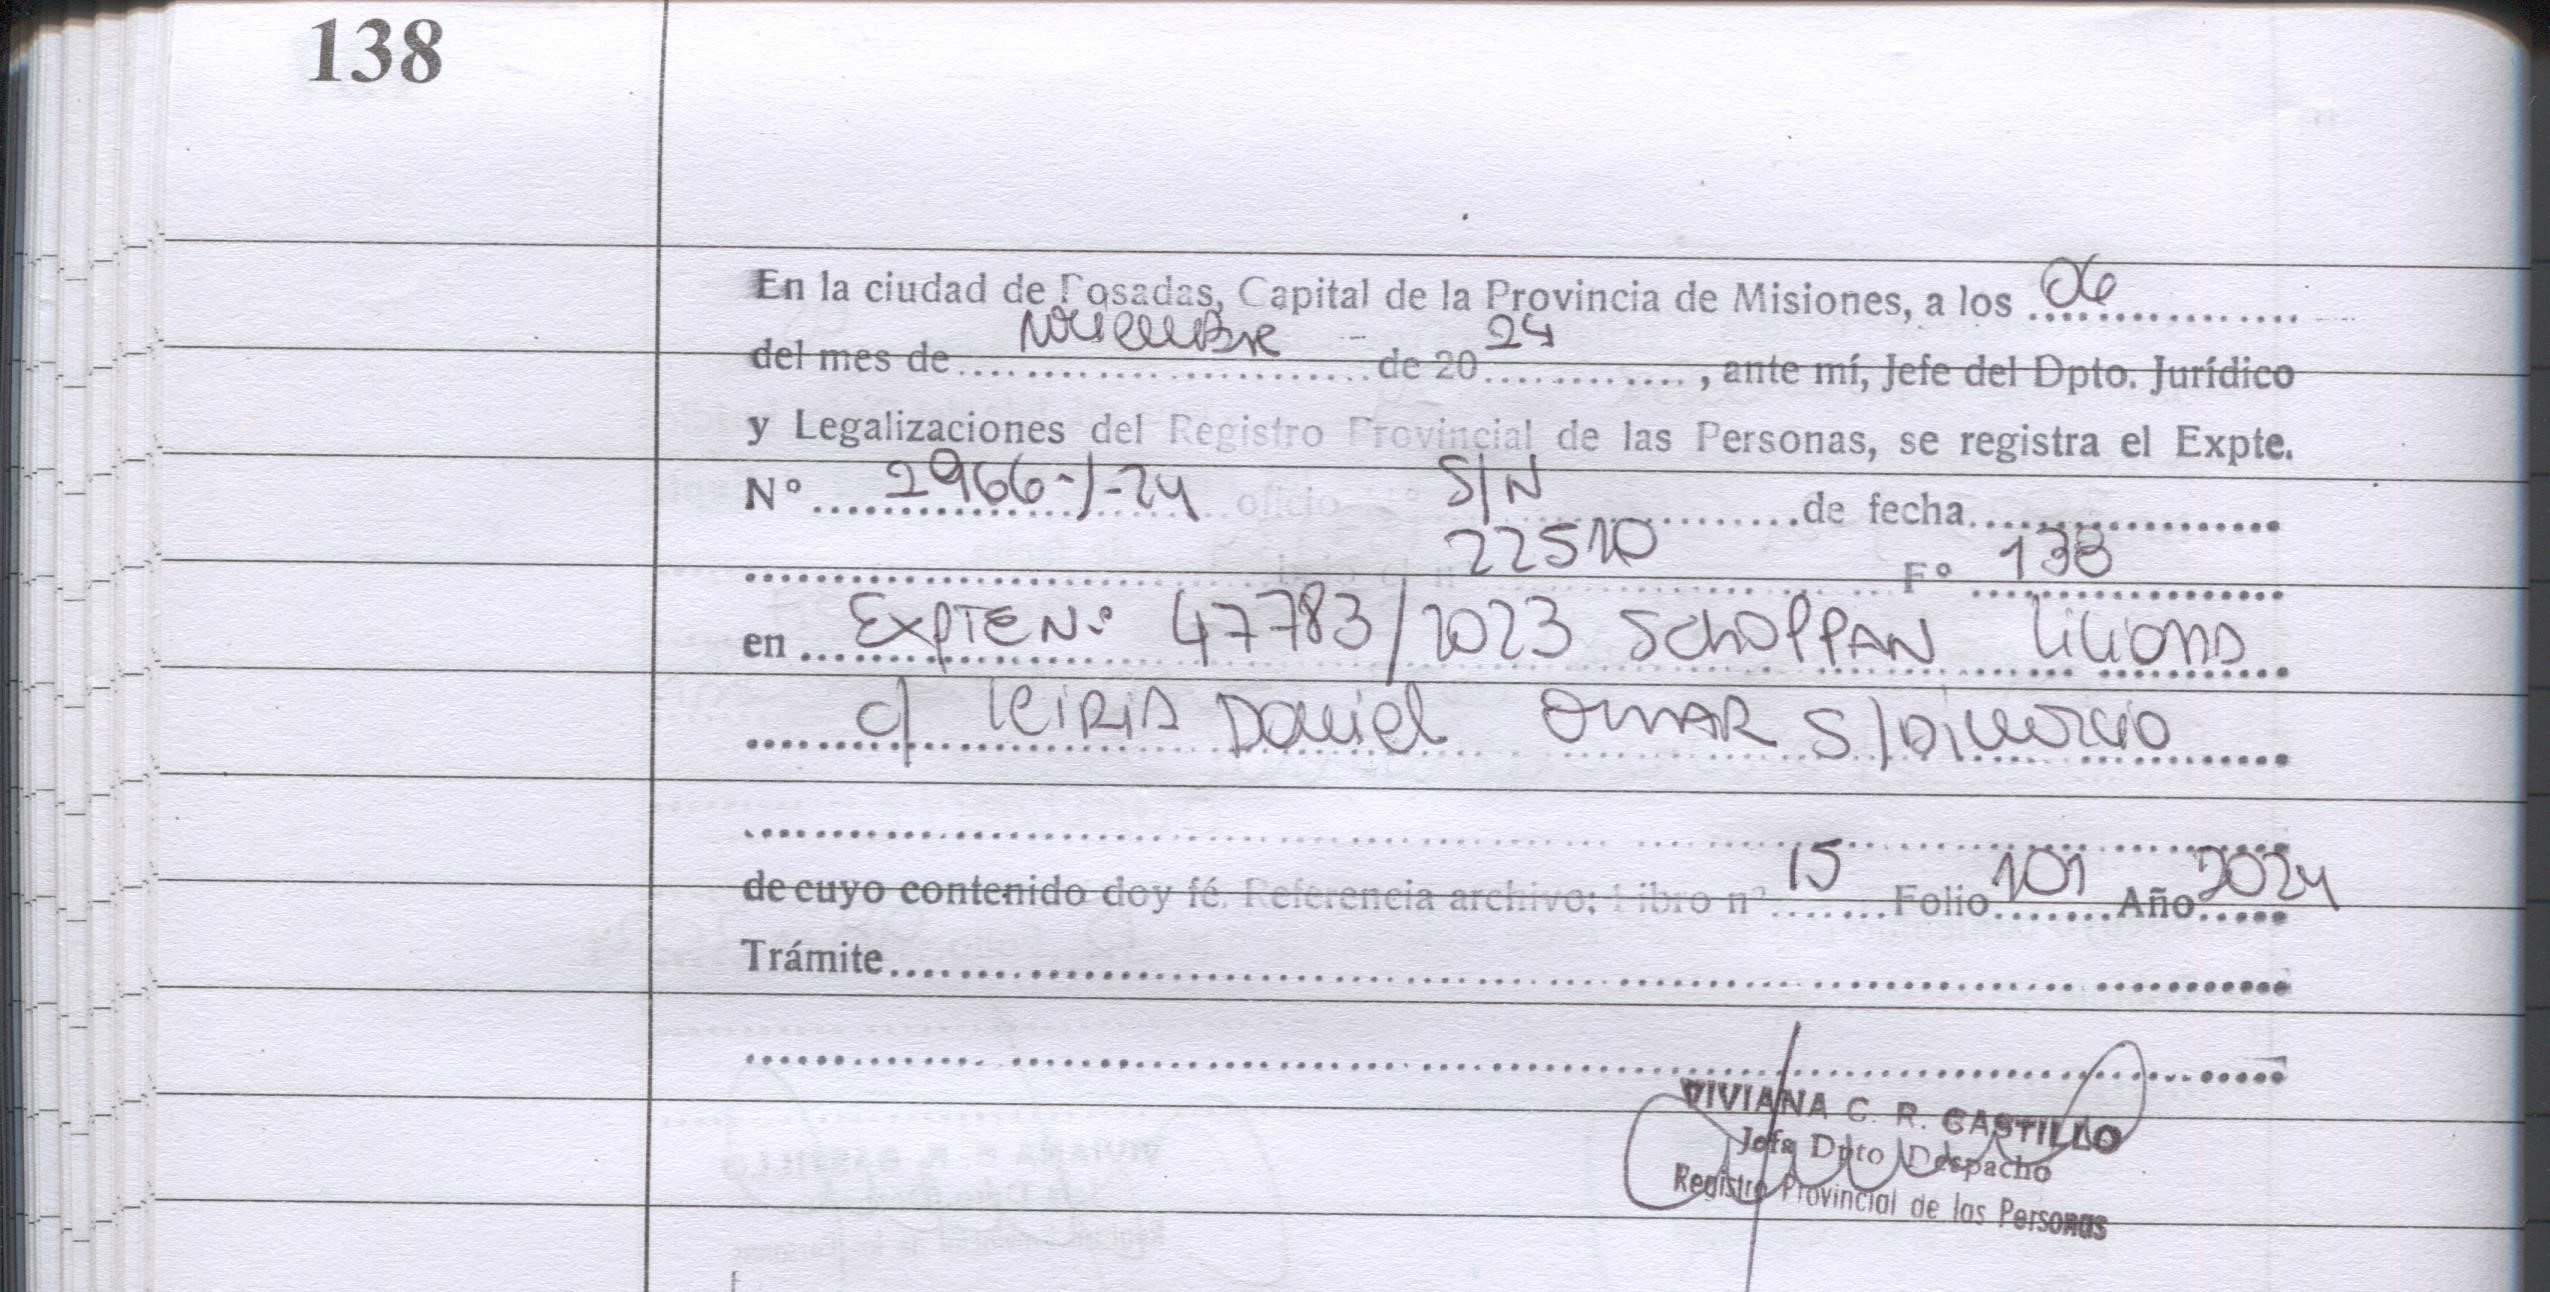 138
En la ciudad de Posadas, Capital de la Provincia de Misiones, a los 06
del mes de noviembre de 2024, ante mí, Jefe del Dpto. Jurídico
y Legalizaciones del Registro Provincial de las Personas, se registra el Expte.
N° 2966-J-24 oficio n° S/N de fecha
22510 F° 138
en EXPTE N: 47783/2023 SCHOPPAN Liliana
c/ Leiria Daniel Omar S/Divorcio
de cuyo contenido doy fé. Referencia archivo: Libro n° 15 Folio 101 Año 2024
Trámite
VIVIANA C. R. CASTILLO
Jefa Dpto Despacho
Registro Provincial de las Personas